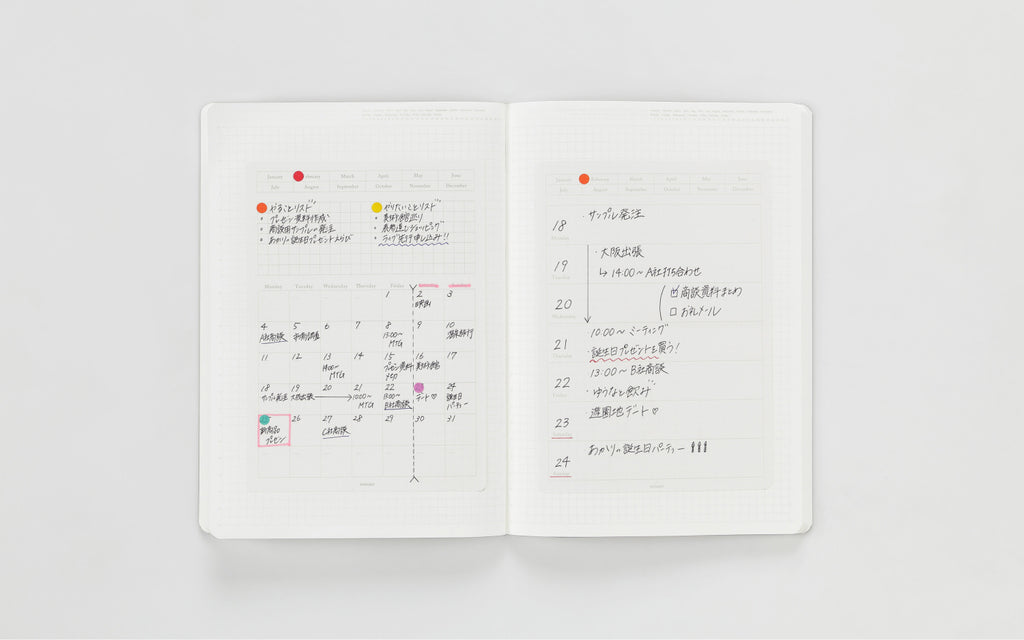 January February March April May June
July August September October November December
やることリスト
・プレゼン資料作成
・商談用サンプルの発注
・あかりの誕生日プレゼントえらび
やりたいことリスト
・美術館巡り
・表参道でショッピング
・ライブ先行申し込み!!
Monday Tuesday Wednesday Thursday Friday
1 2 3
4 5 6 7 8 9 10
A社商談 市場調査 13:00〜 温泉旅行
MTG
11 12 13 14 15 16 17
14:00〜 プレゼン資料 美術館
MTG
18 19 20 21 22 24
サンプル発注 大阪出張 10:00〜 13:00〜 デート♡ 誕生日
MTG B社商談 パーティー
26 27 28 29 30 31
新商品 C社商談
プレゼン
January February March April May June
July August September October November December
18 ・サンプル発注
Monday
19 ・大阪出張
Tuesday ↳ 14:00〜 A社打ち合わせ
20 ☑ 商談資料まとめ
Wednesday □ お礼メール
21 10:00〜 ミーティング
Thursday ・誕生日プレゼントを買う!
22 13:00〜 B社商談
Friday ・ゆうなと飲み
23 ・遊園地デート♡
Saturday
24 あかりの誕生日パーティー
Sunday